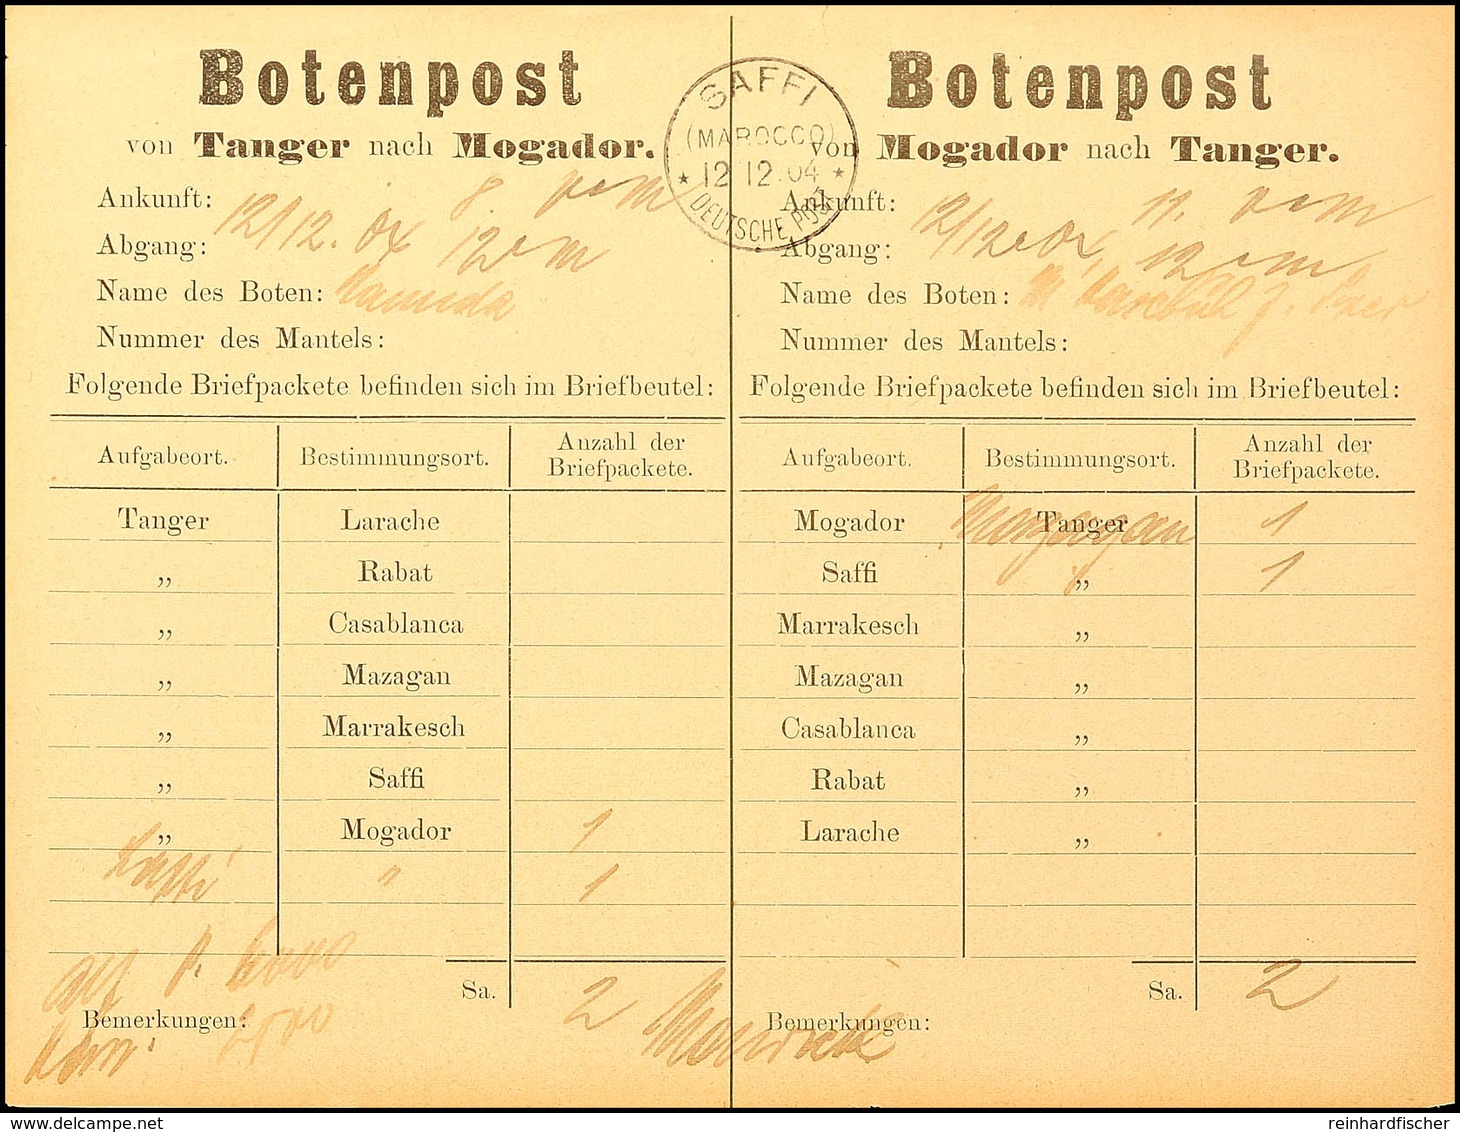 Botenpost
von Tanger nach Mogador.
Ankunft: 12/12. 04 8. vm
Abgang: 12 vm
Name des Boten: Hamida
Nummer des Mantels:
Folgende Briefpackete befinden sich im Briefbeutel:
Aufgabeort. Bestimmungsort. Anzahl der Briefpackete.
Tanger Larache
„ Rabat
„ Casablanca
„ Mazagan
„ Marrakesch
„ Saffi
„ Mogador 1
Saffi " 1
Sa. 2
Bemerkungen:
SAFFI
(MAROCCO)
* 12 12.04 *
DEUTSCHE POST
Botenpost
von Mogador nach Tanger.
Ankunft: 12/12 04 11. vm
Abgang: 12 vm
Name des Boten:
Nummer des Mantels:
Folgende Briefpackete befinden sich im Briefbeutel:
Aufgabeort. Bestimmungsort. Anzahl der Briefpackete.
Mogador Tanger Mazagan 1
Saffi „ 1
Marrakesch „
Mazagan „
Casablanca „
Rabat „
Larache „
Sa. 2
Bemerkungen:
www.delcampe.net
reinhardfischer